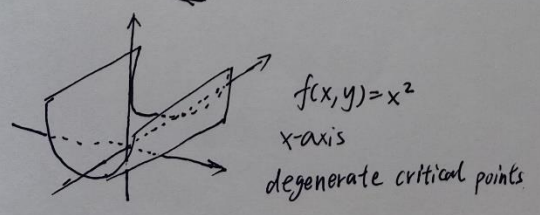 f(x,y)=x²
x-axis
degenerate critical points